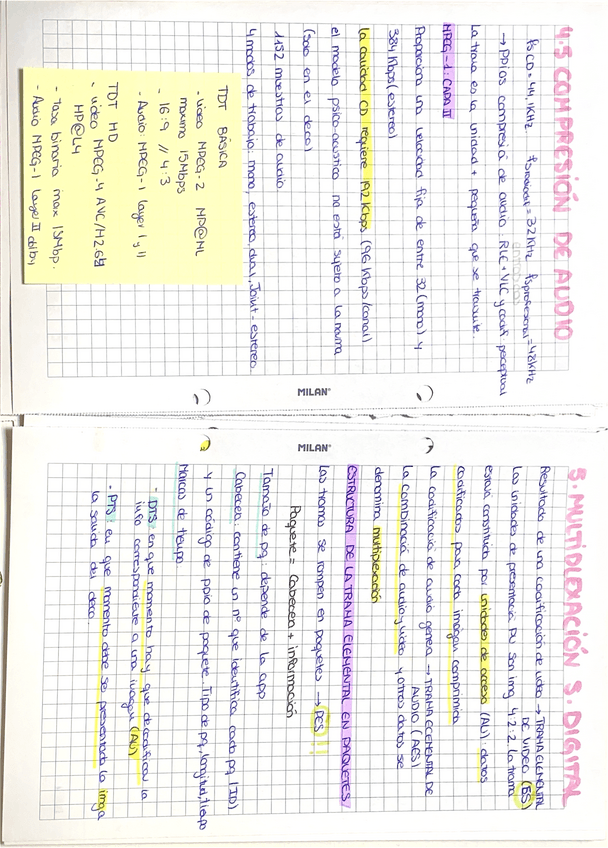 4.5 COMPRESIÓN DE AUDIO
fs CD = 44,1KHz. fs radiodif = 32 KHz fs profesional = 48KHz
→ PPIOS compresió de audio: RLC + VLC y codif perceptual
La trama es la unidad + pequeña que se transmite.
MPEG-1: CAPA II
Proporciona una velocidad fija de entre 32 (mono) y
384 Kbps (estereo)
la calidad CD requiere 192 Kbps (96 Kbps/canal)
el modelo psico-acustico no está sujeto a la norma
(solo en el deco)
1152 muestras de audio
4 modos de trabajo: mono, estereo, dual, Joint-estereo.
TDT BÁSICA
- video MPEG-2 MP@ML
maximo 15Mbps
- 16:9 // 4:3
- Audio: MPEG-1 layer I y II
TDT HD
- video MPEG-4 AVC/H264
HP@L4
- Tasa binaria max 15Mbp.
- Audio MPEG-1 layer II dolby
MILAN
MILAN
5. MULTIPLEXACIÓN S. DIGITAL
Resultado de una codificación de video → TRAMA ELEMENTAL
DE VIDEO (ES)
Las unidades de presentacia PU son img 4:2:2. la trama
estará constituida por unidades de acceso (AU): datos
codificados para cada imagen comprimida
La codificación de audio genera → TRAMA ELEMENTAL DE
AUDIO (AES)
La combinación de audio y video y otros datos se
denomina multiplexación
ESTRUCTURA DE LA TRAMA ELEMENTAL EN PAQUETES
Las tramas se rompen en paquetes → PES!!
Paquete = Cabecera + información
Tamaño de pq: depende de la app
Cabecera: contiene un nº que identifica cada pq (ID)
y un código de ppio de paquete. Tipo de pq, longitud, tiempo
Marcas de tiempo
- DTS: en que momento hay que decodificar la
info correspondiente a una imagen (AU)
- PTS: en que momento debe ser presentada la imga
la salida del deco.